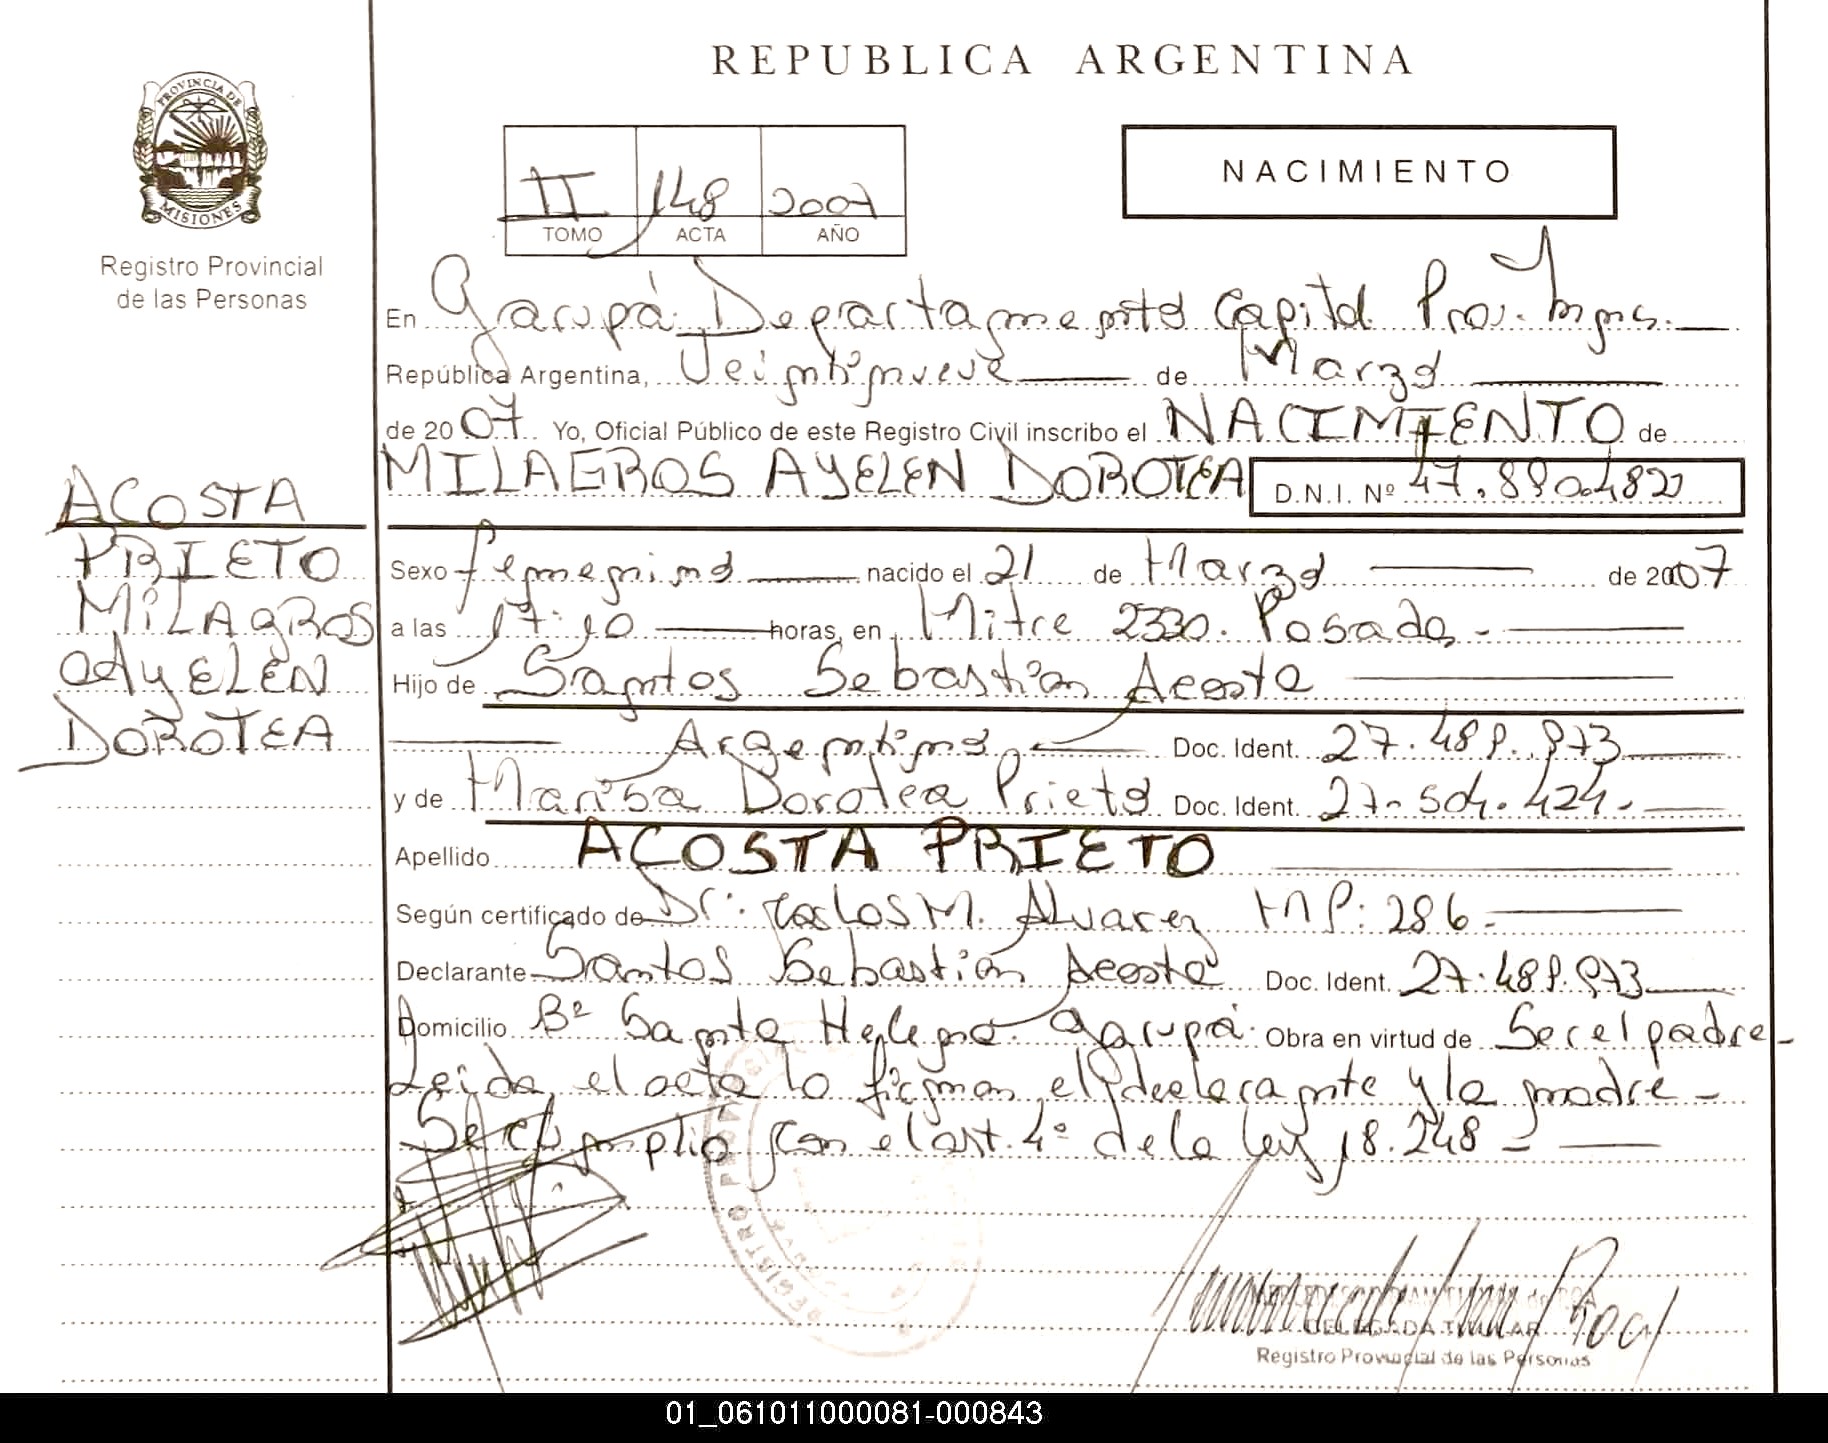 REPUBLICA ARGENTINA
PROVINCIA DE
MISIONES
Registro Provincial
de las Personas
II 148 2007
TOMO ACTA AÑO
NACIMIENTO
En Garupá Departamento Capital Prov. Mnes.
República Argentina, Veintinueve de Marzo
de 2007 Yo, Oficial Público de este Registro Civil inscribo el NACIMIENTO de
MILAGROS AYELEN DOROTEA D.N.I. Nº
ACOSTA
PRIETO
MILAGROS
AYELEN
DOROTEA
Sexo femenino nacido el 21 de Marzo de 2007
a las 17:10 horas, en Mitre 2330. Posadas -
Hijo de Santos Sebastián Acosta
Argentino Doc. Ident. 27.489.973
y de Marisa Dorotea Prieto Doc. Ident. 27-504.424-
Apellido ACOSTA PRIETO
Según certificado de Dr: Carlos M. Alvarez MP: 286-
Declarante Santos Sebastián Acosta Doc. Ident. 27.489.973
Domicilio Bº Santa Helena. Garupá. Obra en virtud de Ser el padre-
Leída el acta la firman el declarante y la madre-
Se cumplió con el art. 4º de la ley 18.248-
DELEGADA TITULAR
Registro Provincial de las Personas
01_061011000081-000843